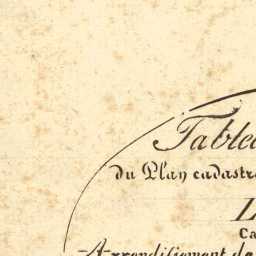 Tablea
du Plan cadastra
L
Ca
Arrondissement de